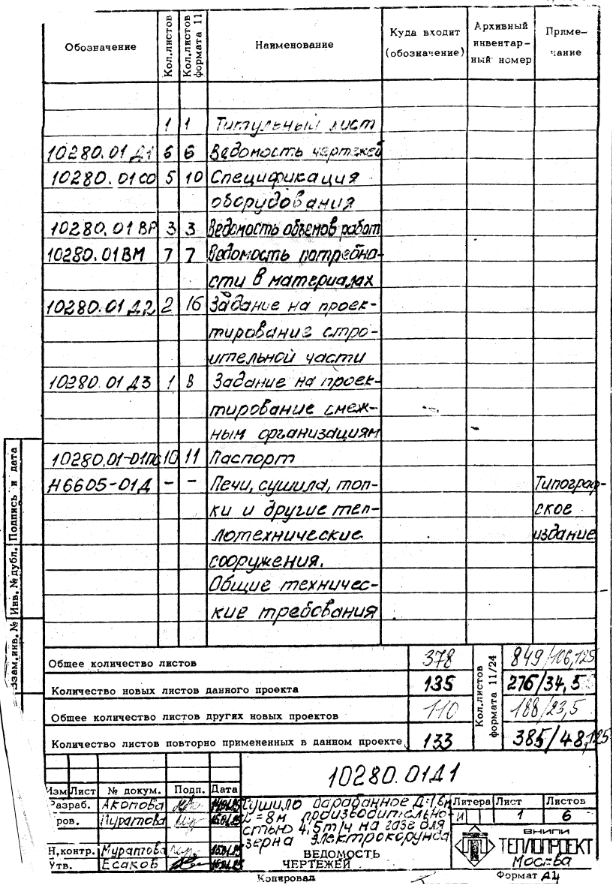 Обозначение Кол.листов Кол.листов формата 11 Наименование Куда входит (обозначение) Архивный инвентарный номер Примечание
1 1 Титульный лист
10280.01 Д1 6 6 Ведомость чертежей
10280.01 СО 5 10 Спецификация
оборудования
10280.01 ВР 3 3 Ведомость объемов работ
10280.01 ВМ 7 7 Ведомость потребно-
сти в материалах
10280.01 Д2 2 16 Задание на проек-
тирование стро-
ительной части
10280.01 Д3 1 8 Задание на проек-
тирование смеж-
ным организациям
10280.01-01ПС 10 11 Паспорт
Н6605-01Д - - Печи, сушила, топ- Типограф-
ки и другие теп- ское
лотехнические издание
сооружения.
Общие техничес-
кие требования
Взам.инв.№ Инв.№дубл. Подпись и дата
Общее количество листов 378 849/106,125
Количество новых листов данного проекта 135 276/34,5
Общее количество листов других новых проектов 110 188/23,5
Количество листов повторно примененных в данном проекте 133 385/48,125
Кол.листов формата 11/24
10280.01Д1
Изм Лист № докум. Подп. Дата
Разраб. Акопова
Пров. Муратова
Н.контр. Муратова
Утв. Есаков
Сушило барабанное Д=1,6м
L=8м производительно-
стью 4,5т/ч на газе для
зерна электрокорунда
ВЕДОМОСТЬ
ЧЕРТЕЖЕЙ
Литера Лист Листов
И 1 6
ВНИПИ
ТЕПЛОПРОЕКТ
Москва
Копировал Формат А4